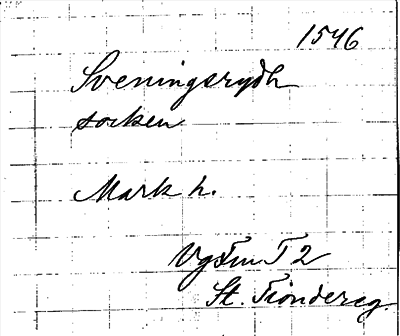 1546
Sveningsrydh
socken
Mark h.
VgFmT 2
St. Tiondereg.